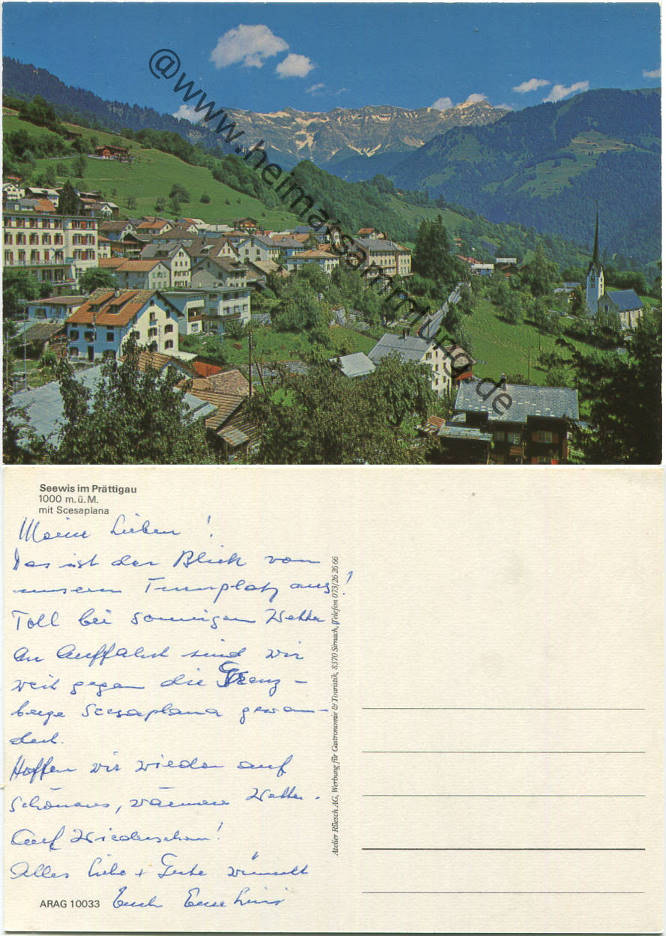 @www.heimatsammlung.de
Seewis im Prättigau
1000 m.ü.M.
mit Scesaplana
Meine Lieben!
Das ist der Blick von
unserm Turnplatz aus!
Toll bei sonnigem Wetter
An Auffahrt sind wir
weit gegen die Grenz-
berge Scesaplana gewan-
dert.
Hoffen wir wieder auf
schöneres, wärmeres Wetter.
Auf Wiedersehen!
Alles Liebe + Gute wünscht
Euch Eure
ARAG 10033
Atelier Rüesch AG, Werbung für Gastronomie & Touristik, 8370 Sirnach, Telefon 073/26 26 66